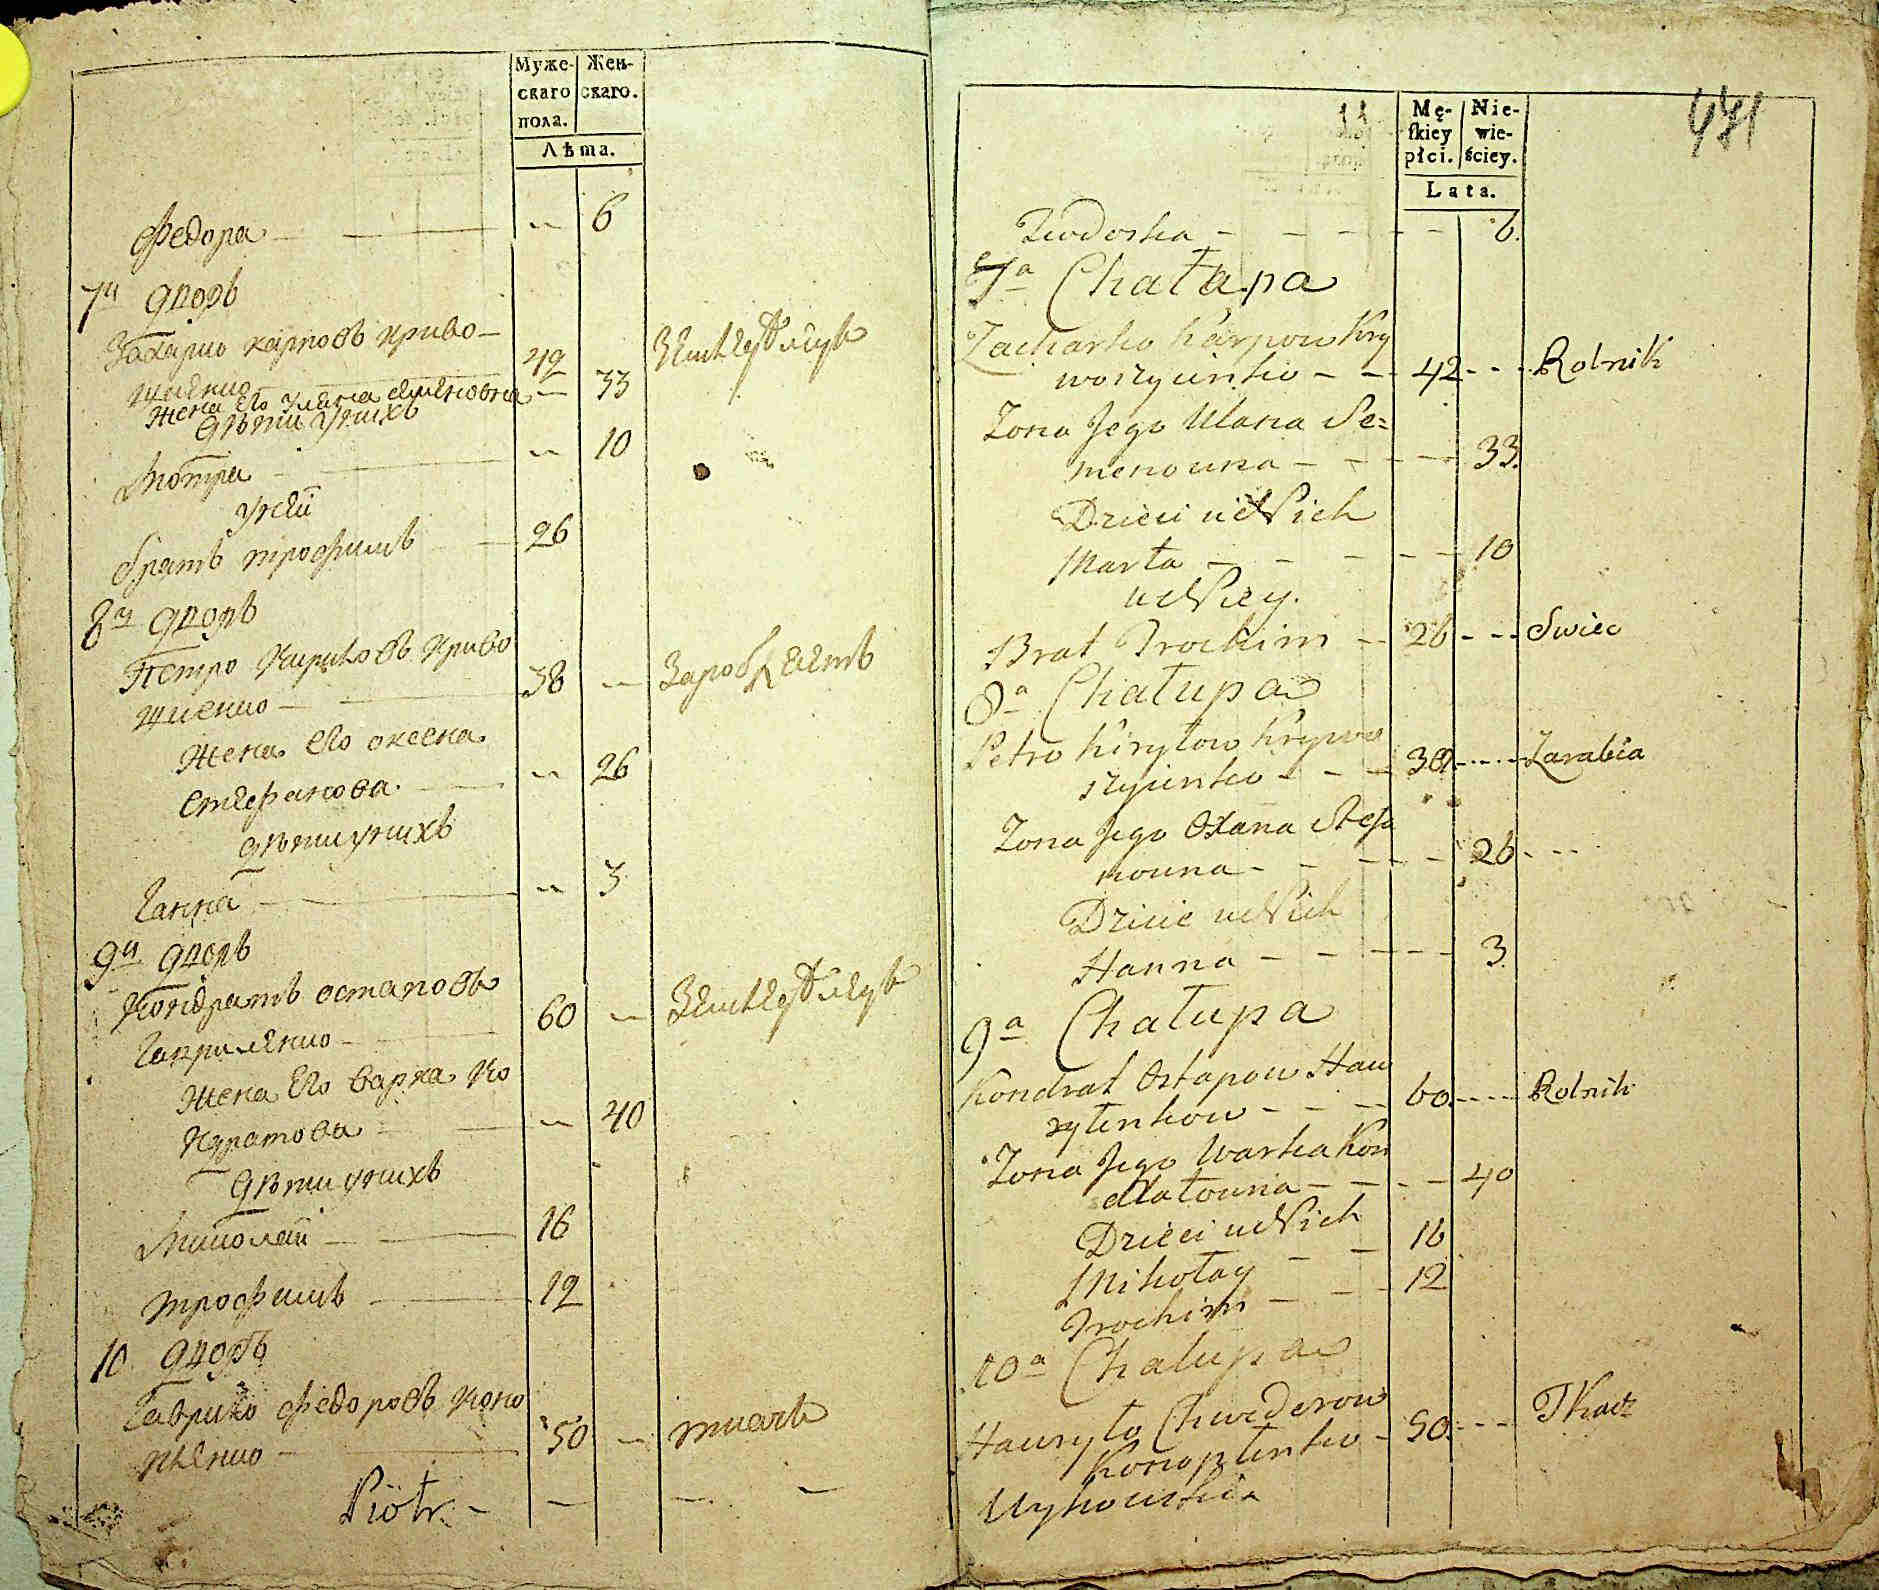 Муже-
скаго
пола.
Жен-
скаго.
Лѣта.
Федора — — — 6
7й дворъ
Захарко карповъ криво-
шиенко 42 Земледѣлецъ
жена его Уляна Семеновна — 33
дѣти у нихъ
Мотра — 10
у ней
братъ трофимъ 26
8й дворъ
Петро Кириловъ криво
шиенко — 38 — Заробляетъ
жена его оксена
Стефанова — 26
дѣти у нихъ
Ганна — 3
9й дворъ
Кондратъ остаповъ
Гавриленко — 60 — Земледѣлецъ
жена его варка Ко
ндратова — 40
дѣти у нихъ
Миколай — 16
трофимъ — 12
10 дворъ
Гаврило федоровъ Коно
пленко — 50 — ткачь
Piotr. — — — —
11
471
Mę-
skiey
płci.
Nie-
wie-
ściey.
Lata.
Chwdorka - - - - - 6.
7a Chałupa
Zacharko Karpow Kry
woszyienko - - 42 - - - Rolnik
Zona Jego Ulana Se=
menowna - - - - 33.
Dzieci u Nich
Marta - - - - - 10
u Niey.
Brat Trochim - 26 - - - Swiec
8a Chałupa
Petro Kiryłow Krywo
szyienko - - - 38 - - - Zarabia
Zona Jego Oxana Stefa
nowna - - - - - 26 - - -
Dzicie u Nich
Hanna - - - - - 3.
9a Chałupa
Kondrat Ostapow Haw
rylenkow - - - 60. - - - Rolnik
Zona Jego Warka Kon
dratowna - - - - 40
Dzieci u Nich
Mikołay - - 16
Trochim - - - 12
10a Chałupa
Hawryło Chwederow
Konoplenko - 50. - - - Tkacz
Wyhowski.